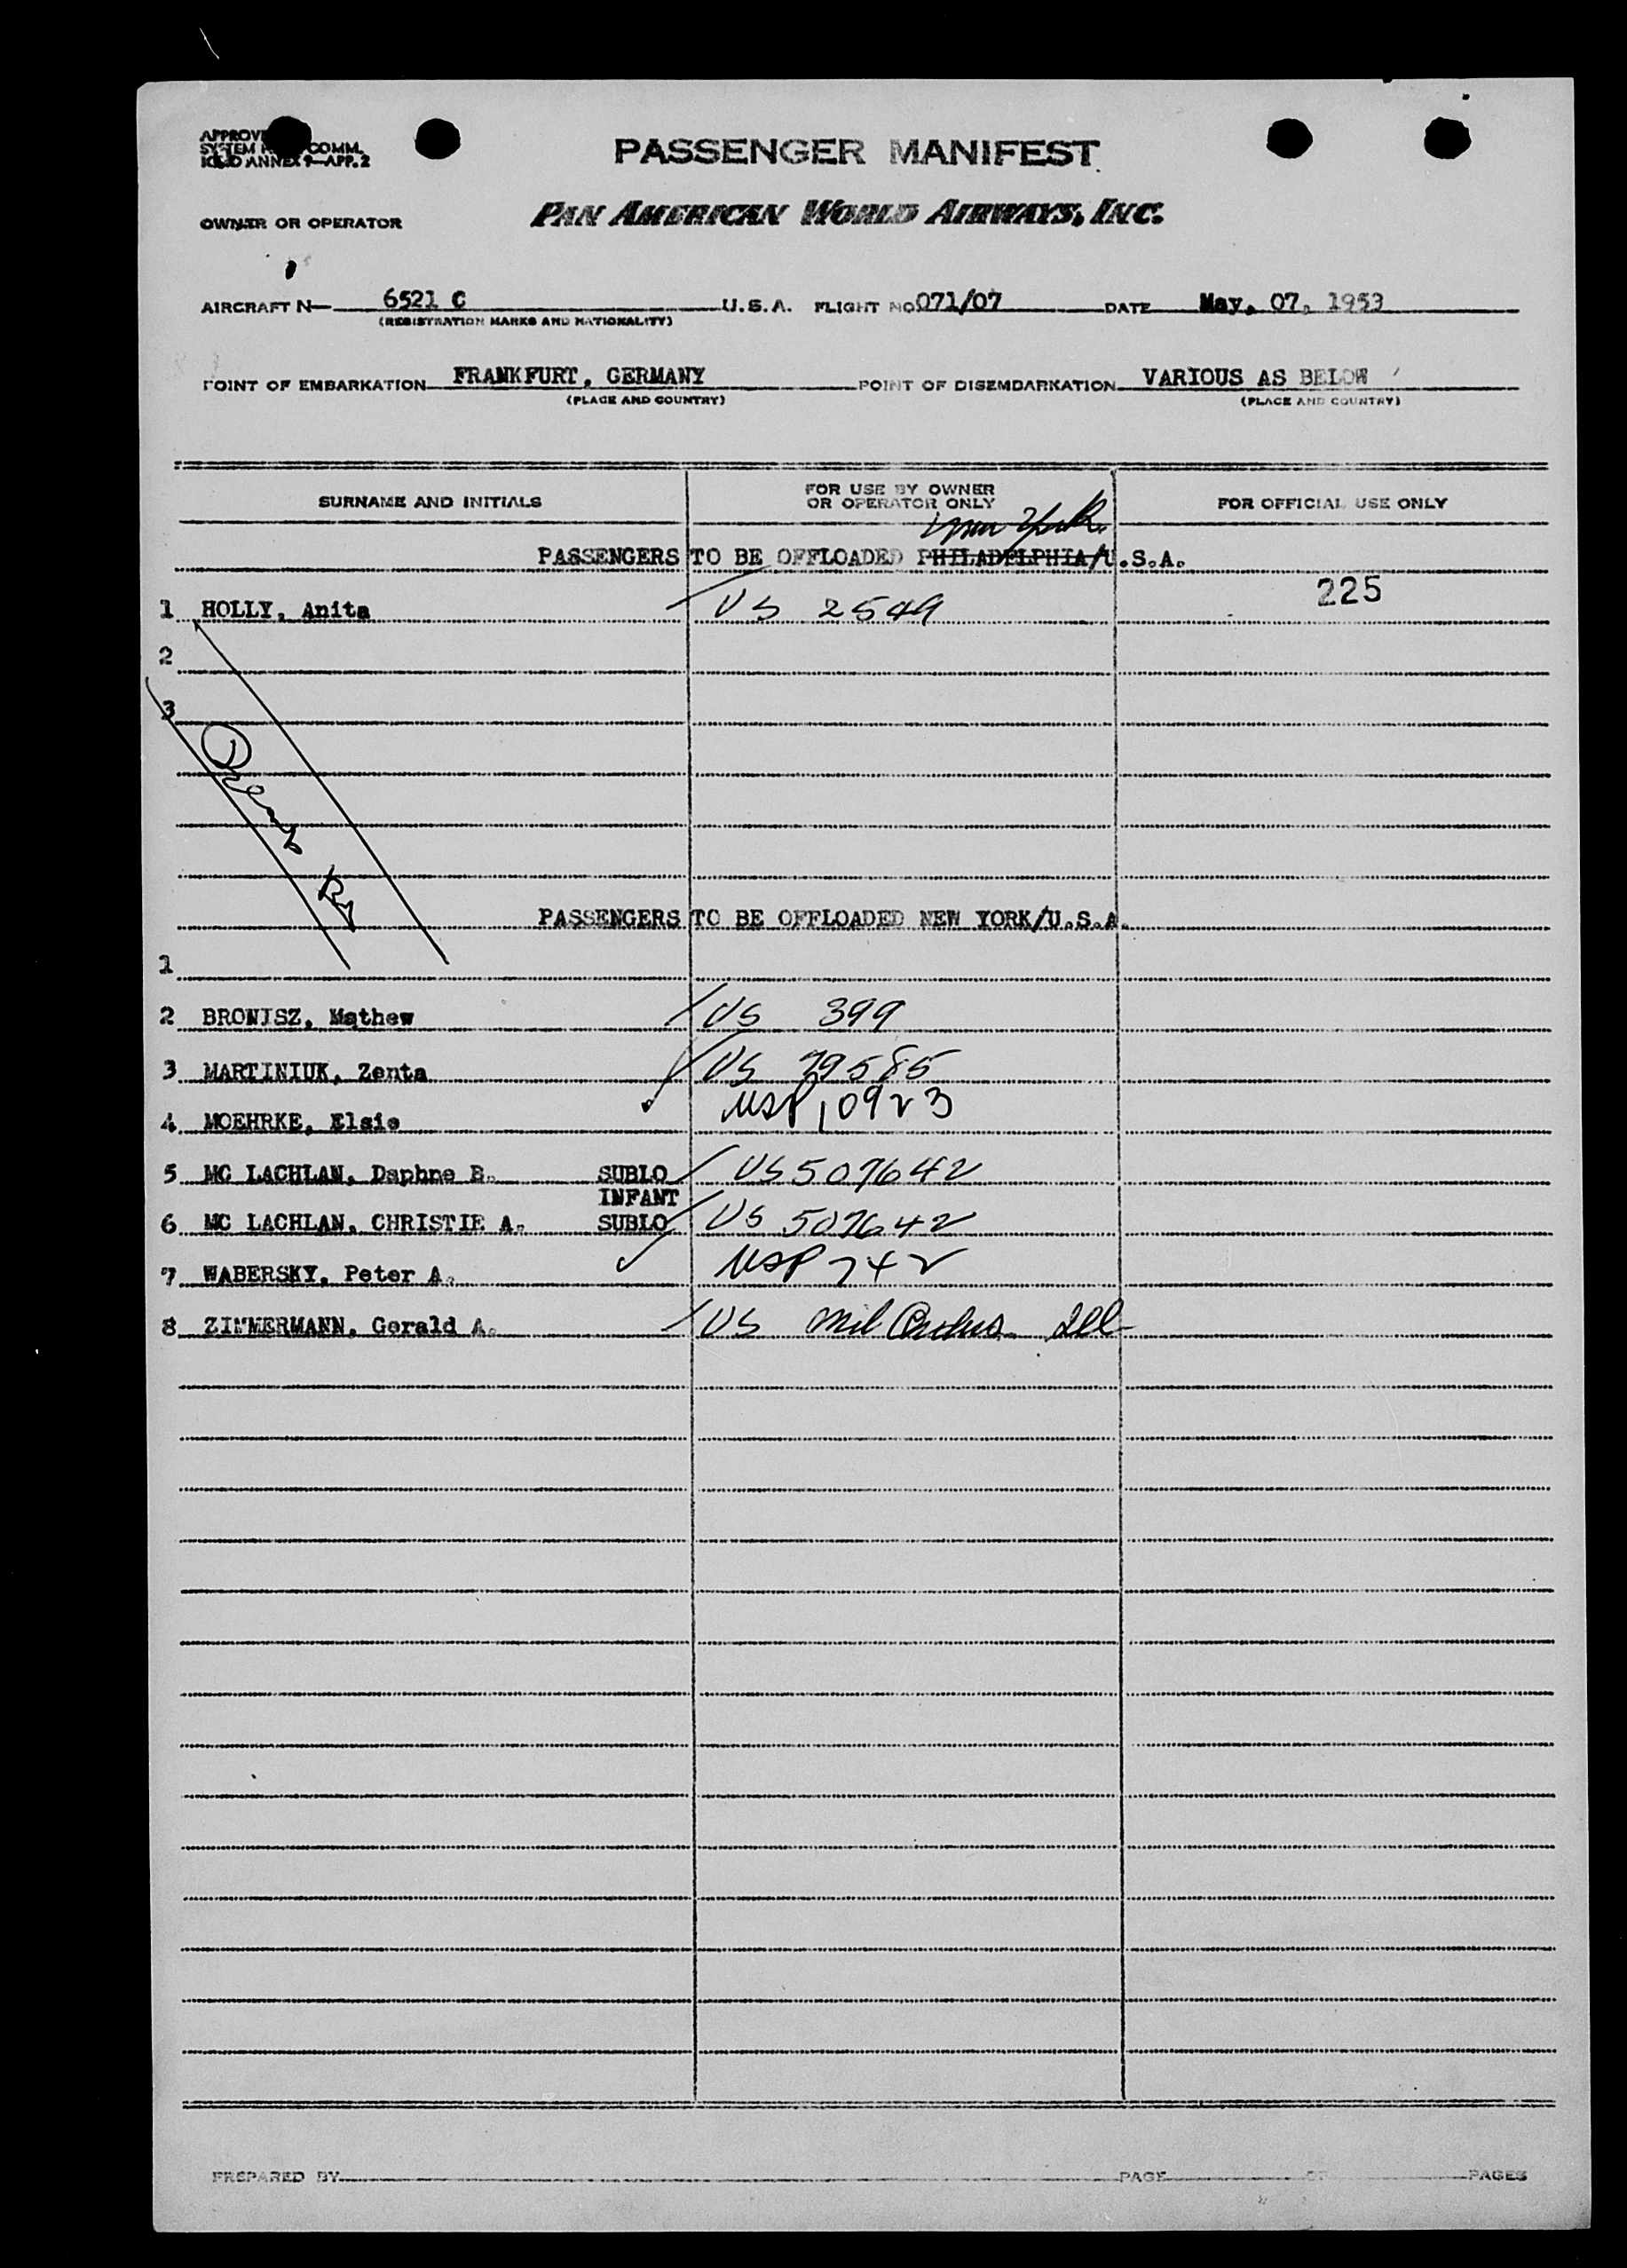 PASSENGER MANIFEST
OWNER OR OPERATOR PAN AMERICAN WORLD AIRWAYS, INC.
AIRCRAFT N— 6521 C U.S.A. FLIGHT NO 071/07 DATE May, 07, 1953
(REGISTRATION MARKS AND NATIONALITY)
POINT OF EMBARKATION FRANKFURT, GERMANY POINT OF DISEMBARKATION VARIOUS AS BELOW
(PLACE AND COUNTRY) (PLACE AND COUNTRY)
SURNAME AND INITIALS FOR USE BY OWNER OR OPERATOR ONLY FOR OFFICIAL USE ONLY
New York
PASSENGERS TO BE OFFLOADED PHILADELPHIA/U.S.A.
225
1 HOLLY, Anita US 2549
2
3
PASSENGERS TO BE OFFLOADED NEW YORK/U.S.A.
1
2 BRONISZ, Mathew US 399
3 MARTINIUK, Zenta US 79585
4 MOEHRKE, Elsie USP 10923
5 MC LACHLAN, Daphne B. SUBLO US 507642
INFANT
6 MC LACHLAN, CHRISTIE A. SUBLO US 507642
7 WABERSKY, Peter A. USP 742
8 ZIMMERMANN, Gerald A. US Mil Orders
PREPARED BY PAGE OF PAGES